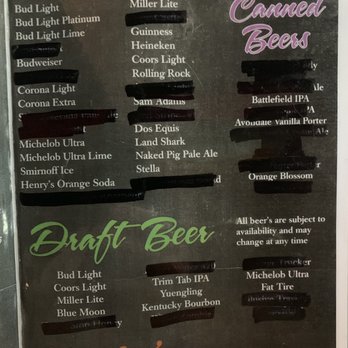 Bud Light
Bud Light Platinum
Bud Light Lime
Budweiser
Corona Light
Corona Extra
Michelob Ultra
Michelob Ultra Lime
Smirnoff Ice
Henry's Orange Soda
Miller Lite
Guinness
Heineken
Coors Light
Rolling Rock
Sam Adams
Dos Equis
Land Shark
Naked Pig Pale Ale
Stella
Canned
Beers
Battlefield IPA
Avondale Vanilla Porter
Orange Blossom
Draft Beer
All beer's are subject to
availability and may
change at any time
Bud Light
Coors Light
Miller Lite
Blue Moon
Trim Tab IPA
Yuengling
Kentucky Bourbon
Michelob Ultra
Fat Tire